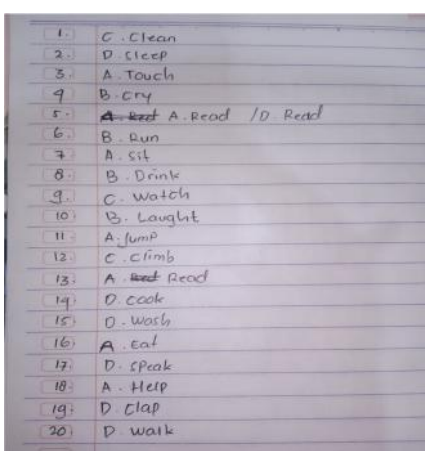 1. C. Clean
2. D. Sleep
3. A. Touch
4 B. Cry
5. A. Red A. Read / D. Read
6. B. Run
7 A. Sit
8. B. Drink
9. C. Watch
10) B. Laught
11. A. Jump
12. C. Climb
13. A Red Read
14) D. Cook
15) D. Wash
16) A. Eat
17. D. Speak
18. A. Help
19) D. Clap
20) D. Walk